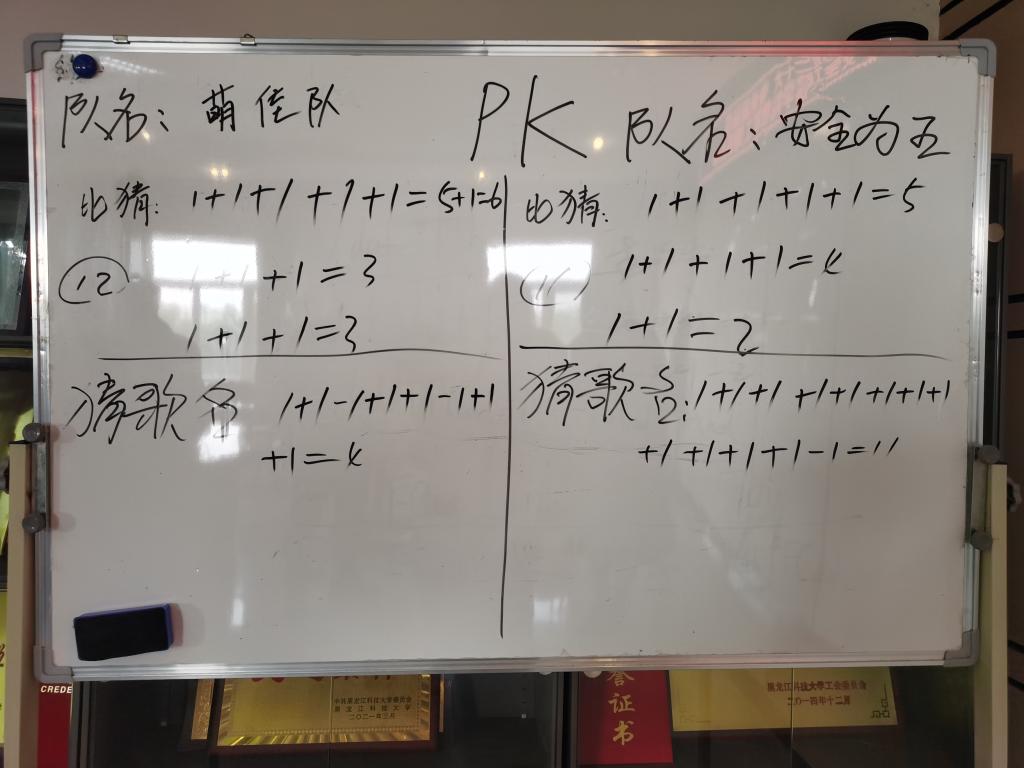 队名：萌佳队
PK
队名：安全为五
比猜：1+1+1+1+1=5+1=6
⑫
1+1+1=3
1+1+1=3
猜歌名 1+1-1+1+1-1+1
+1=4
比猜：1+1+1+1+1=5
⑪
1+1+1+1=4
1+1=2
猜歌名：1+1+1+1+1+1+1+1
+1+1+1+1-1=11
CREDE
中共黑龙江科技大学委员会
黑龙江科技大学
二〇二一年三月
誉证书
黑龙江科技大学工会委员会
二〇一四年十二月